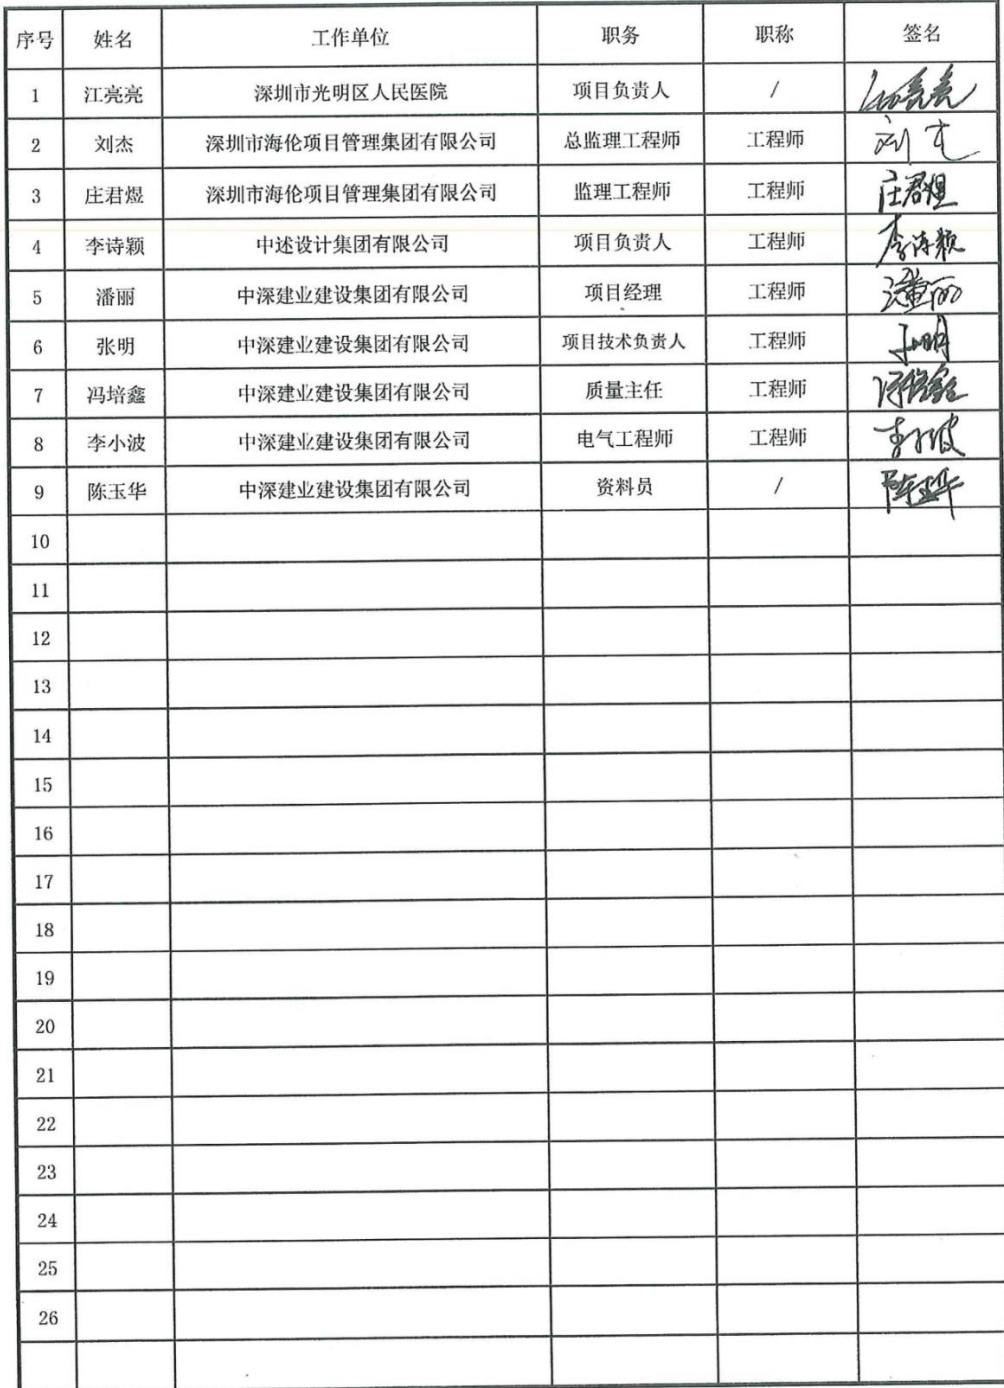 序号 姓名 工作单位 职务 职称 签名
1 江亮亮 深圳市光明区人民医院 项目负责人 / 江亮亮
2 刘杰 深圳市海伦项目管理集团有限公司 总监理工程师 工程师 刘杰
3 庄君煜 深圳市海伦项目管理集团有限公司 监理工程师 工程师 庄君煜
4 李诗颖 中述设计集团有限公司 项目负责人 工程师 李诗颖
5 潘丽 中深建业建设集团有限公司 项目经理 工程师 潘丽
6 张明 中深建业建设集团有限公司 项目技术负责人 工程师 张明
7 冯培鑫 中深建业建设集团有限公司 质量主任 工程师 冯培鑫
8 李小波 中深建业建设集团有限公司 电气工程师 工程师 李小波
9 陈玉华 中深建业建设集团有限公司 资料员 / 陈玉华
10
11
12
13
14
15
16
17
18
19
20
21
22
23
24
25
26